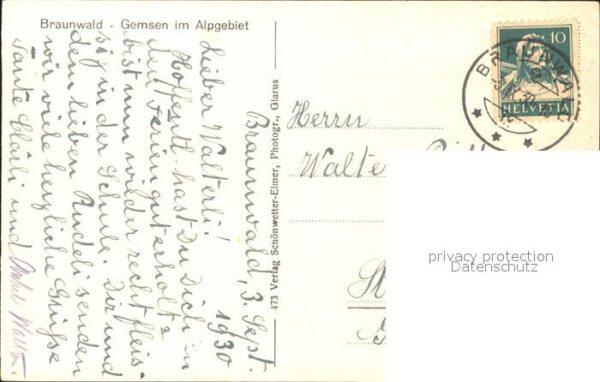 Braunwald - Gemsen im Alpgebiet
Braunwald, 3. Sept.
1930
Lieber Walterli!
Hoffentl. hast Du Dich in
den Ferien gut erholt &
bist nun wieder recht fleis-
sig in der Schule. Dir und
dem lieben Ruedeli senden
wir viele herzliche Grüsse
Tante Cläili und
473 Verlag Schönwetter-Elmer, Photogr., Glarus
Herrn
Walter
10
HELVETIA
BRAUNWALD
privacy protection
Datenschutz